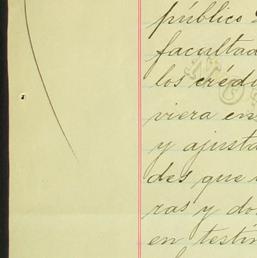 público
facultad
los crédi
viera en
y ajusta
des que
ras y do
en testin